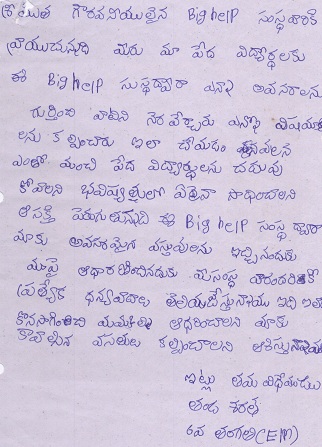 గౌరవనీయులైన Big help సంస్థవారికి
వ్రాయునది మీరు మా పేద విద్యార్థులకు
ఈ Big help సంస్థద్వారా ఎన్నో అవసరాలను
గుర్తించి వాటిని నెరవేర్చారు ఎన్నో విషయా
లను కల్పించారు ఇలా చేయడం వలన
ఎంతో మంది పేద విద్యార్థులను చదువు
కోవాలని భవిష్యత్తులో ఏదైనా సాధించాలని
ఆసక్తి పెరుగుతున్నది ఈ Big help సంస్థ ద్వారా
మాకు అవసరమైన వస్తువులను ఇచ్చినందుకు
మాపై సంస్థ
ప్రత్యేక ధన్యవాదాలు తెలియజేస్తున్నాము ఇది ఇలా
కొనసాగించి మమ్మల్ని ఆధరించాలని మాకు
కావాల్సిన వసతులు కల్పించాలని ఆశిస్తున్నాము
ఇట్లు తమ విధేయుడు
6వ తరగతి (EM)